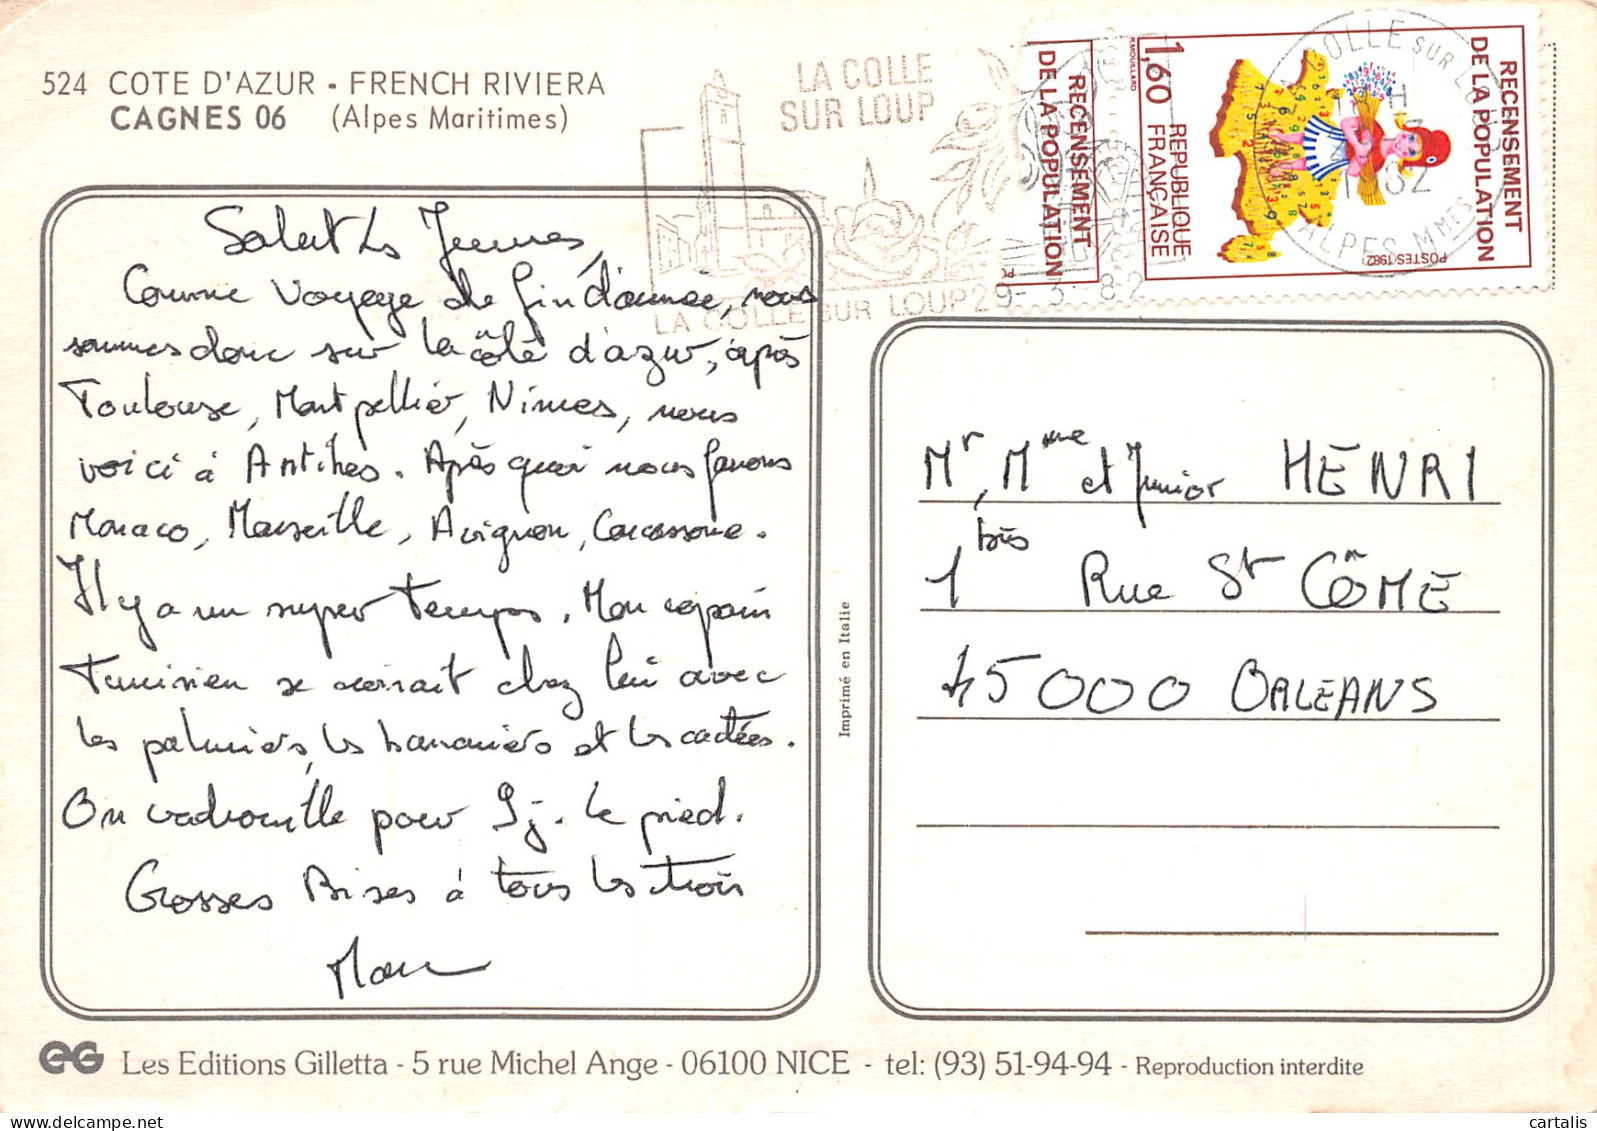 524 COTE D'AZUR - FRENCH RIVIERA
CAGNES 06 (Alpes Maritimes)
LA COLLE
SUR LOUP
LA COLLE SUR LOUP 29-3 82
RECENSEMENT
DE LA POPULATION
1,60
REPUBLIQUE
FRANÇAISE
R.MOUILLARD
POSTES 1982
RECENSEMENT
DE LA POPULATION
COLLE SUR LOUP
1982
ALPES MMES
Salut les Jeunes,
Comme voyage de fin d'année, nous
sommes donc sur la côte d'azur, après
Toulouse, Montpellier, Nimes, nous
voici à Antibes. Après quoi nous ferons
Monaco, Marseille, Avignon, Carcassonne.
Il y a un super temps. Mon copain
Tunisien se croirait chez lui avec
les palmiers, les bananiers et les cactées.
On vadrouille pour 9j. le pied.
Grosses Bises à tous les trois
Marc
Mr, Mme et Junior HENRI
1 bis Rue St CÔME
45000 ORLEANS
Imprimé en Italie
EG Les Editions Gilletta - 5 rue Michel Ange - 06100 NICE - tel: (93) 51-94-94 - Reproduction interdite
cartalis